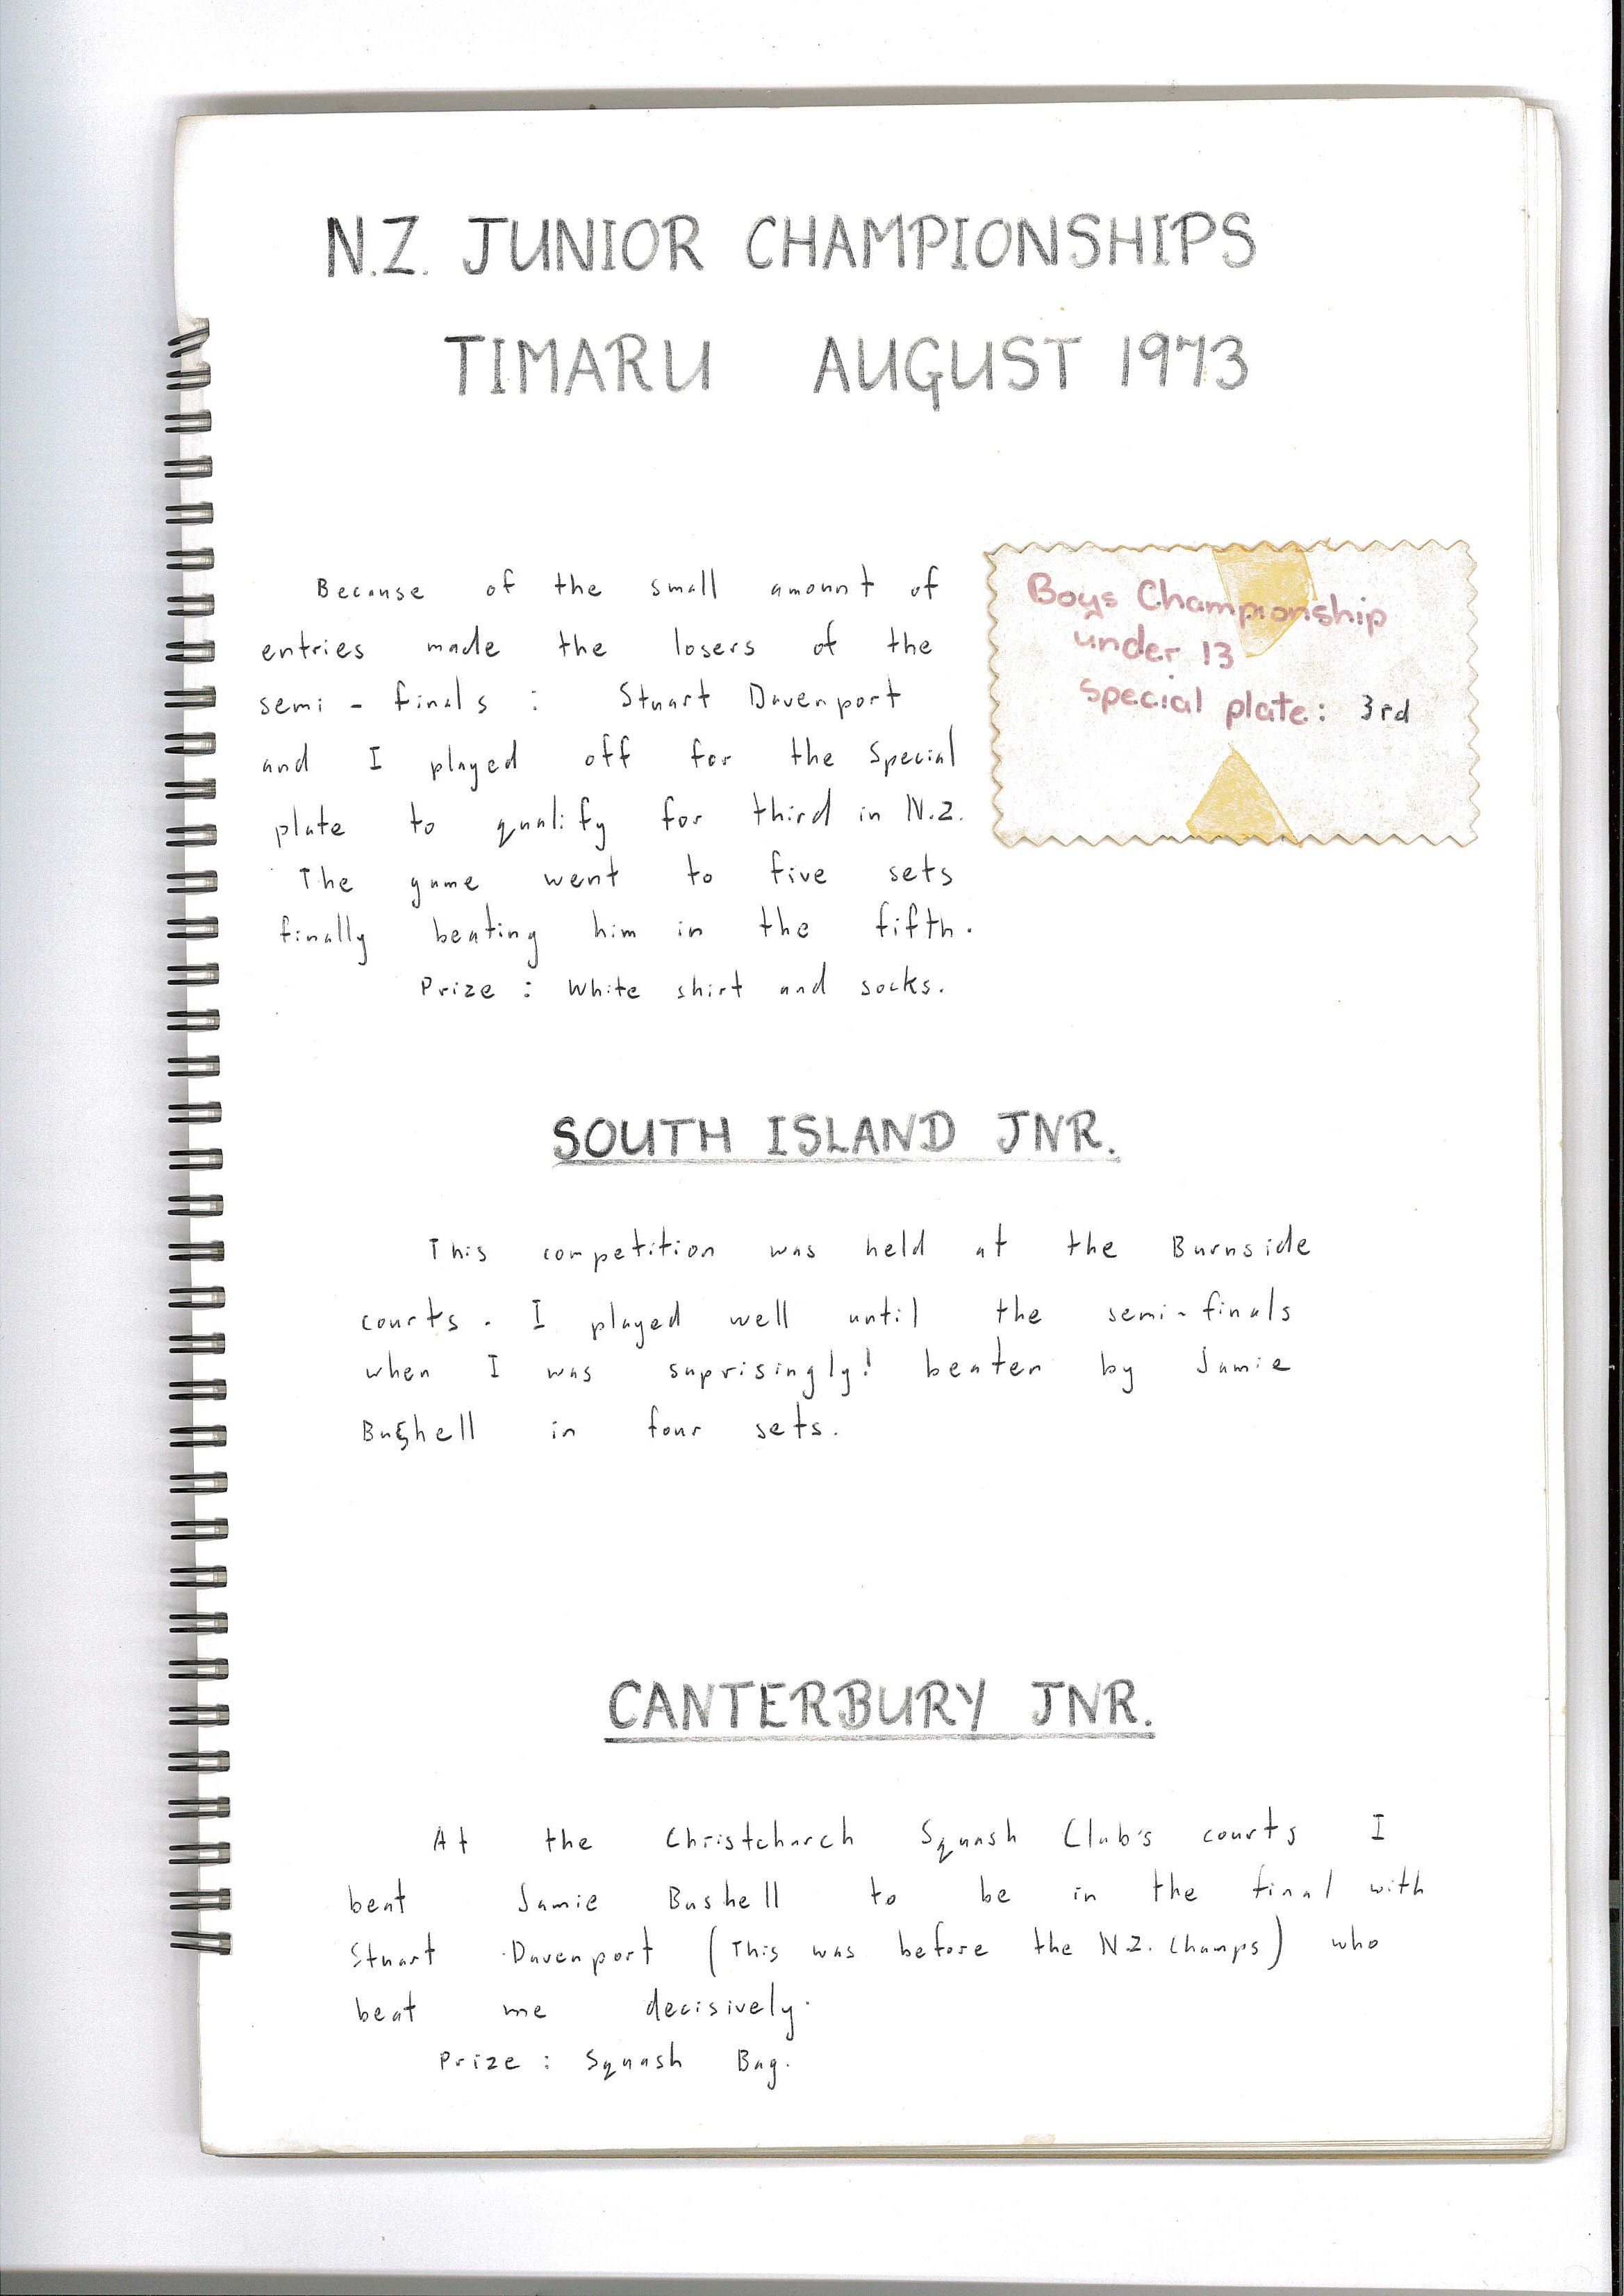 N.Z. JUNIOR CHAMPIONSHIPS
TIMARU AUGUST 1973
Because of the small amount of
entries made the losers of the
semi - finals : Stuart Davenport
and I played off for the Special
plate to qualify for third in N.Z.
The game went to five sets
finally beating him in the fifth.
Prize : White shirt and socks.
Boys Championship
under 13
special plate: 3rd
SOUTH ISLAND JNR.
This competition was held at the Burnside
courts. I played well until the semi-finals
when I was suprisingly! beaten by Jamie
Bushell in four sets.
CANTERBURY JNR.
At the Christchurch Squash Club's courts I
beat Jamie Bushell to be in the final with
Stuart Davenport (This was before the N.Z. Champs) who
beat me decisively.
Prize : Squash Bag.